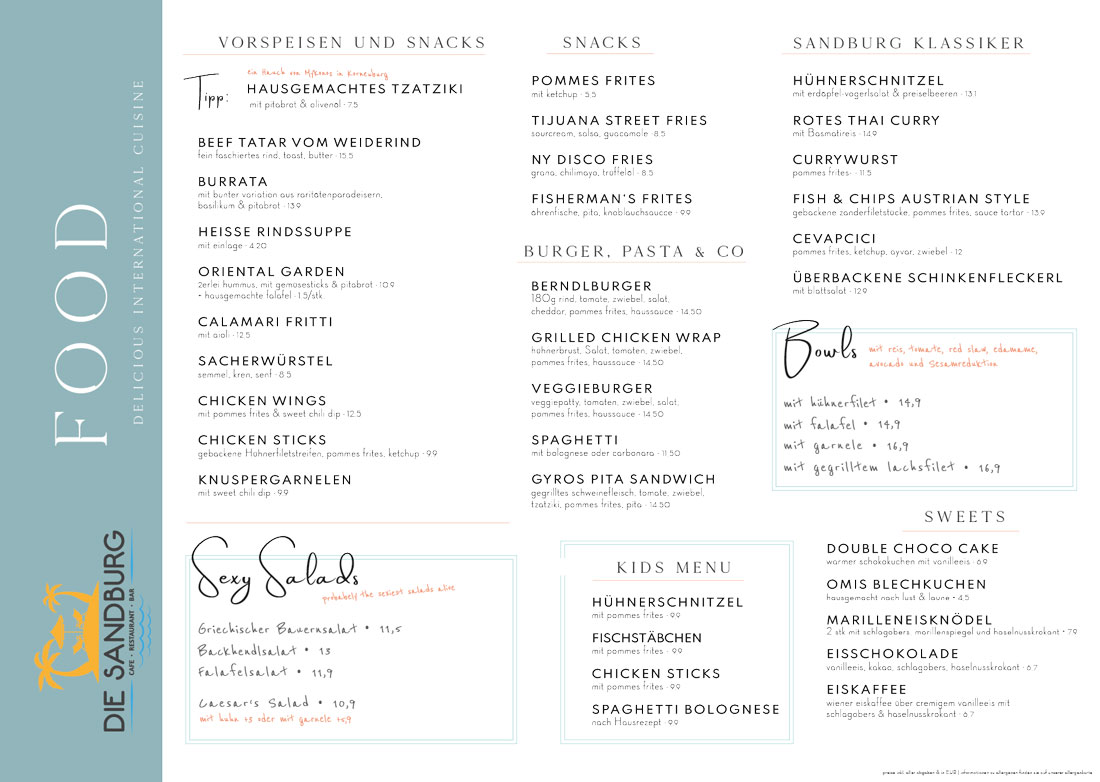 FOOD
DELICIOUS INTERNATIONAL CUISINE
DIE SANDBURG
CAFE • RESTAURANT • BAR
VORSPEISEN UND SNACKS
Tipp:
ein Hauch von Mykonos in Korneuburg
HAUSGEMACHTES TZATZIKI
mit pitabrot & olivenöl · 7.5
BEEF TATAR VOM WEIDERIND
fein faschiertes rind, toast, butter · 15.5
BURRATA
mit bunter variation aus raritätenparadeisern,
basilikum & pitabrot · 13.9
HEISSE RINDSSUPPE
mit einlage · 4.20
ORIENTAL GARDEN
2erlei hummus, mit gemüsesticks & pitabrot · 10.9
+ hausgemachte falafel · 1.5/stk.
CALAMARI FRITTI
mit aioli · 12.5
SACHERWÜRSTEL
semmel, kren, senf · 8.5
CHICKEN WINGS
mit pommes frites & sweet chili dip · 12.5
CHICKEN STICKS
gebackene Hühnerfiletstreifen, pommes frites, ketchup · 9.9
KNUSPERGARNELEN
mit sweet chili dip · 9.9
Sexy Salads
probabely the sexiest salads alive
Griechischer Bauernsalat • 11,5
Backhendlsalat • 13
Falafelsalat • 11,9
Caesar's Salad • 10,9
mit huhn +3 oder mit garnele +5,9
SNACKS
POMMES FRITES
mit ketchup · 5.5
TIJUANA STREET FRIES
sourcream, salsa, guacamole · 8.5
NY DISCO FRIES
grana, chilimayo, trüffelöl · 8.5
FISHERMAN'S FRITES
ährenfische, pita, knoblauchsauce · 9.9
BURGER, PASTA & CO
BERNDLBURGER
180g rind, tomate, zwiebel, salat,
cheddar, pommes frites, haussauce · 14.50
GRILLED CHICKEN WRAP
hühnerbrust, Salat, tomaten, zwiebel,
pommes frites, haussauce · 14.50
VEGGIEBURGER
veggiepatty, tomaten, zwiebel, salat,
pommes frites, haussauce · 14.50
SPAGHETTI
mit bolognese oder carbonara · 11.50
GYROS PITA SANDWICH
gegrilltes schweinefleisch, tomate, zwiebel,
tzatziki, pommes frites, pita · 14.50
KIDS MENU
HÜHNERSCHNITZEL
mit pommes frites · 9.9
FISCHSTÄBCHEN
mit pommes frites · 9.9
CHICKEN STICKS
mit pommes frites · 9.9
SPAGHETTI BOLOGNESE
nach Hausrezept · 9.9
SANDBURG KLASSIKER
HÜHNERSCHNITZEL
mit erdäpfel-vogerlsalat & preiselbeeren · 13.1
ROTES THAI CURRY
mit Basmatireis · 14.9
CURRYWURST
pommes frites · 11.5
FISH & CHIPS AUSTRIAN STYLE
gebackene zanderfiletstücke, pommes frites, sauce tartar · 13.9
CEVAPCICI
pommes frites, ketchup, ayvar, zwiebel · 12
ÜBERBACKENE SCHINKENFLECKERL
mit blattsalat · 12.9
Bowls
mit reis, tomate, red slaw, edamame,
avocado und Sesamreduktion
mit hühnerfilet • 14,9
mit falafel • 14,9
mit garnele • 16,9
mit gegrilltem lachsfilet • 16,9
SWEETS
DOUBLE CHOCO CAKE
warmer schokokuchen mit vanilleeis · 6.9
OMIS BLECHKUCHEN
hausgemacht nach lust & laune • 4,5
MARILLENEISKNÖDEL
2 stk mit schlagobers, marillenspiegel und haselnusskrokant • 7.9
EISSCHOKOLADE
vanilleeis, kakao, schlagobers, haselnusskrokant · 6.7
EISKAFFEE
wiener eiskaffee über cremigem vanilleeis mit
schlagobers & haselnusskrokant · 6.7